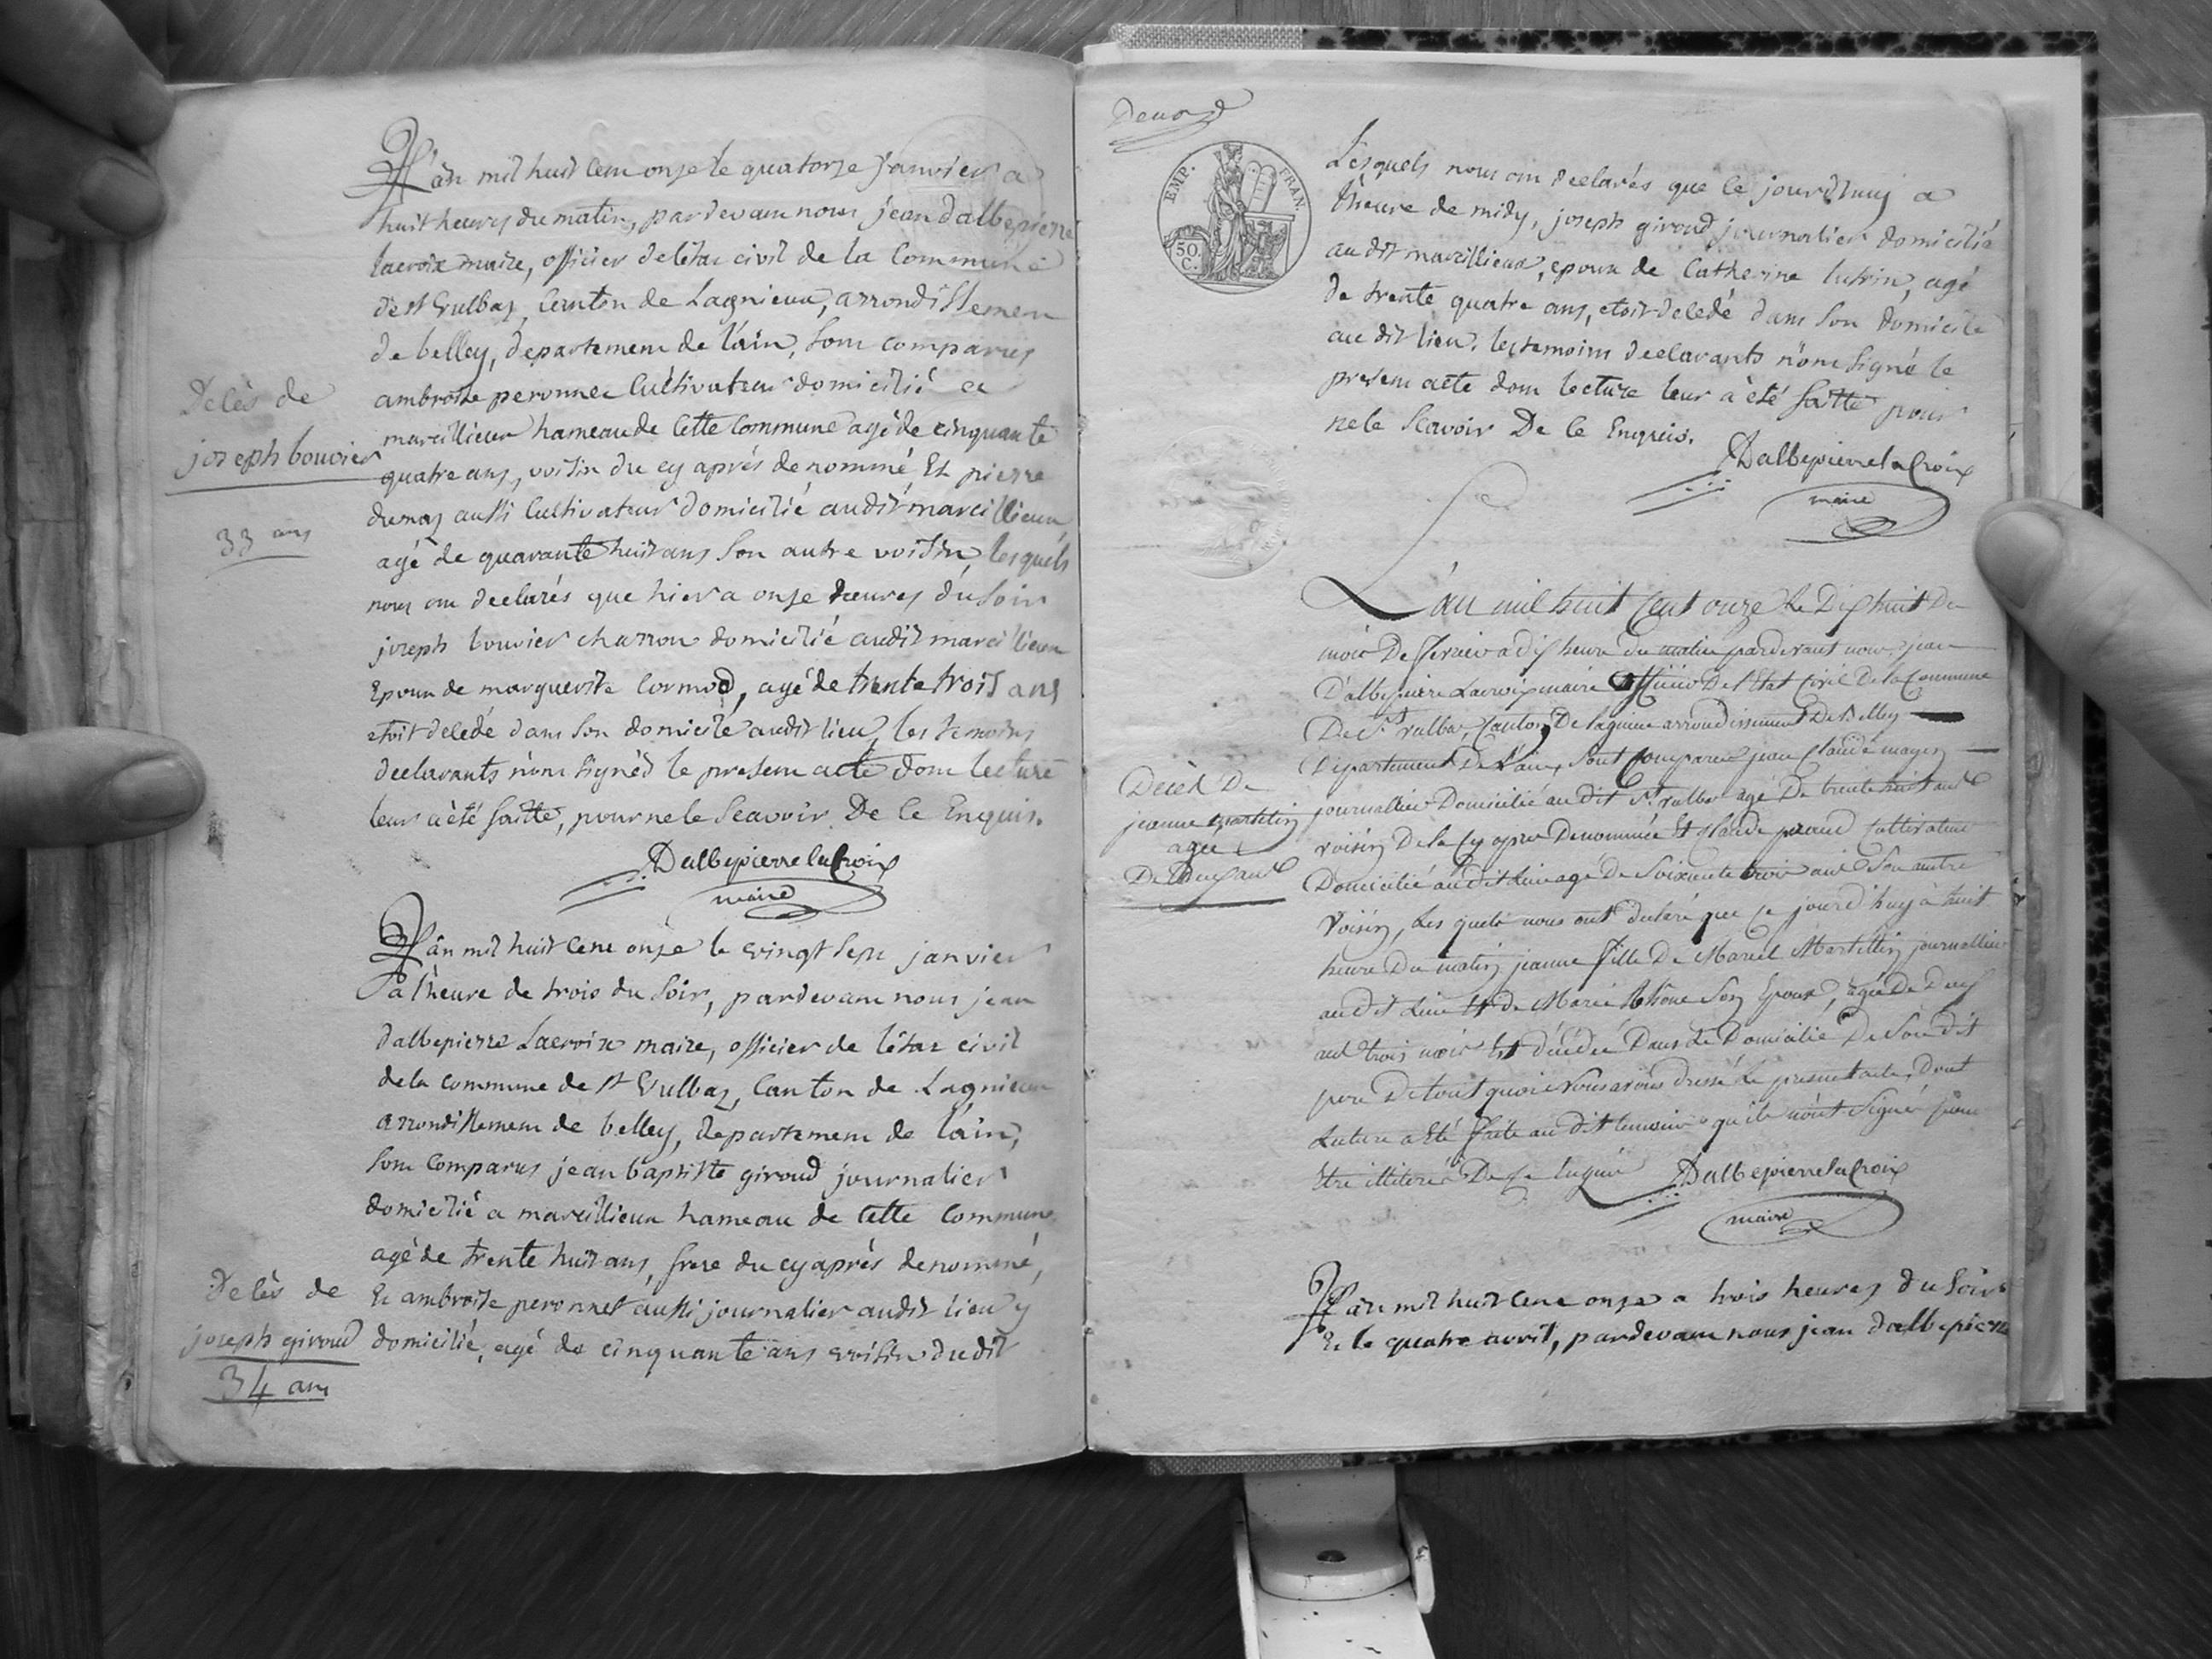 L'an mil huit cent onze le quatorze janvier a
huit heures du matin, pardevant nous jean dalbepierre
lacroix maire, officier de létat civil de la Commune
de st Vulbaz, Canton de Lagnieux, arrondissement
de belley, departement de l'ain, sont comparus
Delés de
ambroise peronnet Cultivateur domicilié a
joseph bouvier
marcillieux hameau de Cette Commune agé de cinquante
quatre ans, voisin du cy aprés denommé Et pierre
33 ans
dumaz aussi Cultivateur domicilié audit marcillieux
agé de quarante huit ans son autre voisin, lesquels
nous ont declarés que hier a onze heures du soir
joseph bouvier charron domicilié audit marcillieux
Epoux de marguerite Cormod, agé de trente trois ans
etoit deledé dans son domicile audit lieu, les temoins
declarants n'ont signés le present acte dont lecture
leur à été faitte, pour ne le Scavoir De Ce Enquis.
Dalbepierre lacroix
maire
L'an mil huit cent onze le vingt sept janvier
a l'heure de trois du soir, pardevant nous jean
dalbepierre Lacroix maire, officier de létat civil
de la commune de st Vulbaz, Canton de Lagnieux
arrondissement de belley, departement de l'ain,
sont Comparus jean baptiste giroud journalier
domicilié a marcillieux hameau de Cette Commune,
agé de trente huit ans, frere du cy aprés denommé,
Delés de
Et ambroise peronnet aussi journalier audit lieu y
joseph giroud
domicilié, agé de cinquante ans voisin dudit
34 ans
Lesquels nous ont declarés que ce jourdhuy a
l'heure de midy, joseph giroud journalier domicilié
au dit marcillieux, epoux de Catherine lutrin, agé
de trente quatre ans, etoit deledé dans son domicile
au dit lieu. les temoins declarants n'ont signé le
present acte dont lecture leur à été faitte pour
ne le Scavoir De Ce Enquis.
EMP. FRAN.
50.
C.
Dalbepierre lacroix
maire
L'an mil huit Cent onze Le Dix huit Du
mois De fevrier a dix heure du matin pardevant nous, jean
D'albepierre Lacroix maire officier De l'Etat Civil De la Commune
De St vulba, Canton De lagnieu arrondissement De Belley
Département De L'ain, Sont Comparu jean Claude mayer
Décés De
jeanne martelin
agée
De Deux ans
journallier Domicilié au dit St vulba agé De trente huit ans
voisin De la Cy apres Denommée Et Claude Cultivateur
Domicilié au dit Lieu agé De Soixante trois ans Son autre
Voisin, Les quels nous ont declaré que Ce jourd'huy à huit
heure Du matin jeanne fille De Marcel Martellin journallier
au dit Lieu Et de Marie Rhône Son Epouse, agée De Deux
ans trois mois Est décédée Dans Le Domicilié De Son dit
pere De tout quoi Nous avons dressé Le présent acte, Dont
Lecture a Eté faite au dit temoins qu ils n'ont Signé pour
Etre illiteré De Ce Enquis
Dalbepierre lacroix
maire
L'an mil huit Cent onze a trois heures du soir
Et le quatre avril, pardevant nous jean dalbepierre